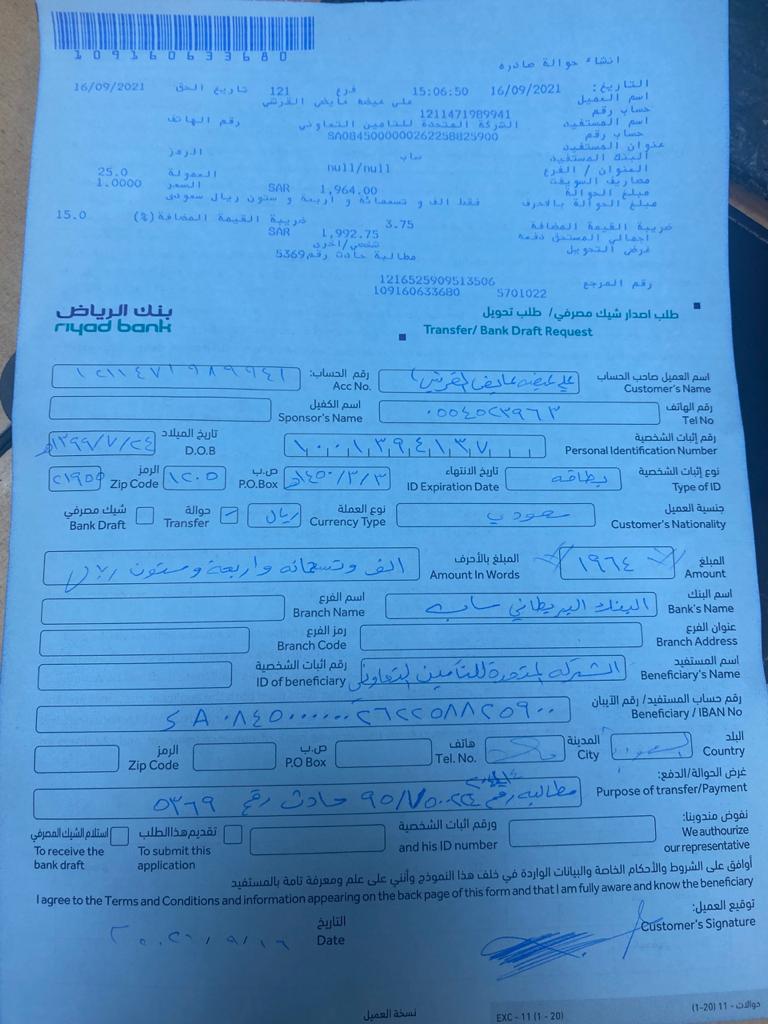 109160633680
انشاء حوالة صادره
التاريخ: 16/09/2021 15:06:50 فرع 121 تاريخ الحق 16/09/2021
اسم العميل علي عيضه عايض القرشي
حساب رقم 1211471989941
اسم المستفيد الشركة المتحدة للتامين التعاوني رقم الهاتف
حساب رقم SA0845000000262258825900
عنوان المستفيد
البنك المستفيد ساب الرمز
العنوان / الفرع null/null
مصاريف السويفت العمولة 25.0
مبلغ الحوالة 1,964.00 SAR السعر 1.0000
مبلغ الحوالة بالاحرف فقط الف و تسعمائة و اربعة و ستون ريال سعودي
ضريبة القيمة المضافة 3.75 ضريبة القيمة المضافة (%) 15.0
اجمالي المستحق دفعه 1,992.75 SAR
غرض التحويل شخصي/اخرى
مطالبة حادث رقم 5369
رقم المرجع 1216525909513506
109160633680 5701022
بنك الرياض
riyad bank
طلب اصدار شيك مصرفي/ طلب تحويل
Transfer/ Bank Draft Request
اسم العميل صاحب الحساب علي عيضه عايض القرشي رقم الحساب: ١٢١١٤٧١٩٨٩٩٤١
Customer's Name Acc No.
رقم الهاتف ٠٥٥٤٥٢٣٩٦٣ اسم الكفيل
Tel No Sponsor's Name
رقم إثبات الشخصية ١٠٠١٣٩٤١٣٧ تاريخ الميلاد ١٣٩٩/٧/٢٤هـ
Personal Identification Number D.O.B
نوع إثبات الشخصية بطاقه تاريخ الانتهاء ١٤٥٠/٣/٣هـ ص.ب ١٢٠٥ الرمز ٢١٩٥٥
Type of ID ID Expiration Date P.O.Box Zip Code
جنسية العميل سعودي نوع العملة ريال حوالة شيك مصرفي
Customer's Nationality Currency Type Transfer Bank Draft
المبلغ ١٩٦٤ المبلغ بالأحرف الف وتسعمائه واربعة وستون ريال
Amount Amount In Words
اسم البنك البنك البريطاني ساب اسم الفرع
Bank's Name Branch Name
عنوان الفرع رمز الفرع
Branch Address Branch Code
اسم المستفيد الشركه المتحدة للتأمين التعاوني رقم اثبات الشخصية
Beneficiary's Name ID of beneficiary
رقم حساب المستفيد/ رقم الآيبان SA٠٨٤٥٠٠٠٠٠٠٢٦٢٢٥٨٨٢٥٩٠٠
Beneficiary / IBAN No
البلد السعودية المدينة هاتف ص.ب الرمز
Country City Tel. No. P.O Box Zip Code
غرض الحوالة/الدفع: مطالبه رقم حادث رقم ٥٣٦٩
Purpose of transfer/Payment
نفوض مندوبنا: ورقم اثبات الشخصية تقديم هذا الطلب استلام الشيك المصرفي
We authorize our representative and his ID number To submit this application To receive the bank draft
أوافق على الشروط والأحكام الخاصة والبيانات الواردة في خلف هذا النموذج وأنني على علم ومعرفة تامة بالمستفيد
I agree to the Terms and Conditions and information appearing on the back page of this form and that I am fully aware and know the beneficiary
توقيع العميل: التاريخ ٢٠٢١/٩/١٦
Customer's Signature Date
نسخة العميل
EXC - 11 (1 - 20) حوالات - 11 (20-1)